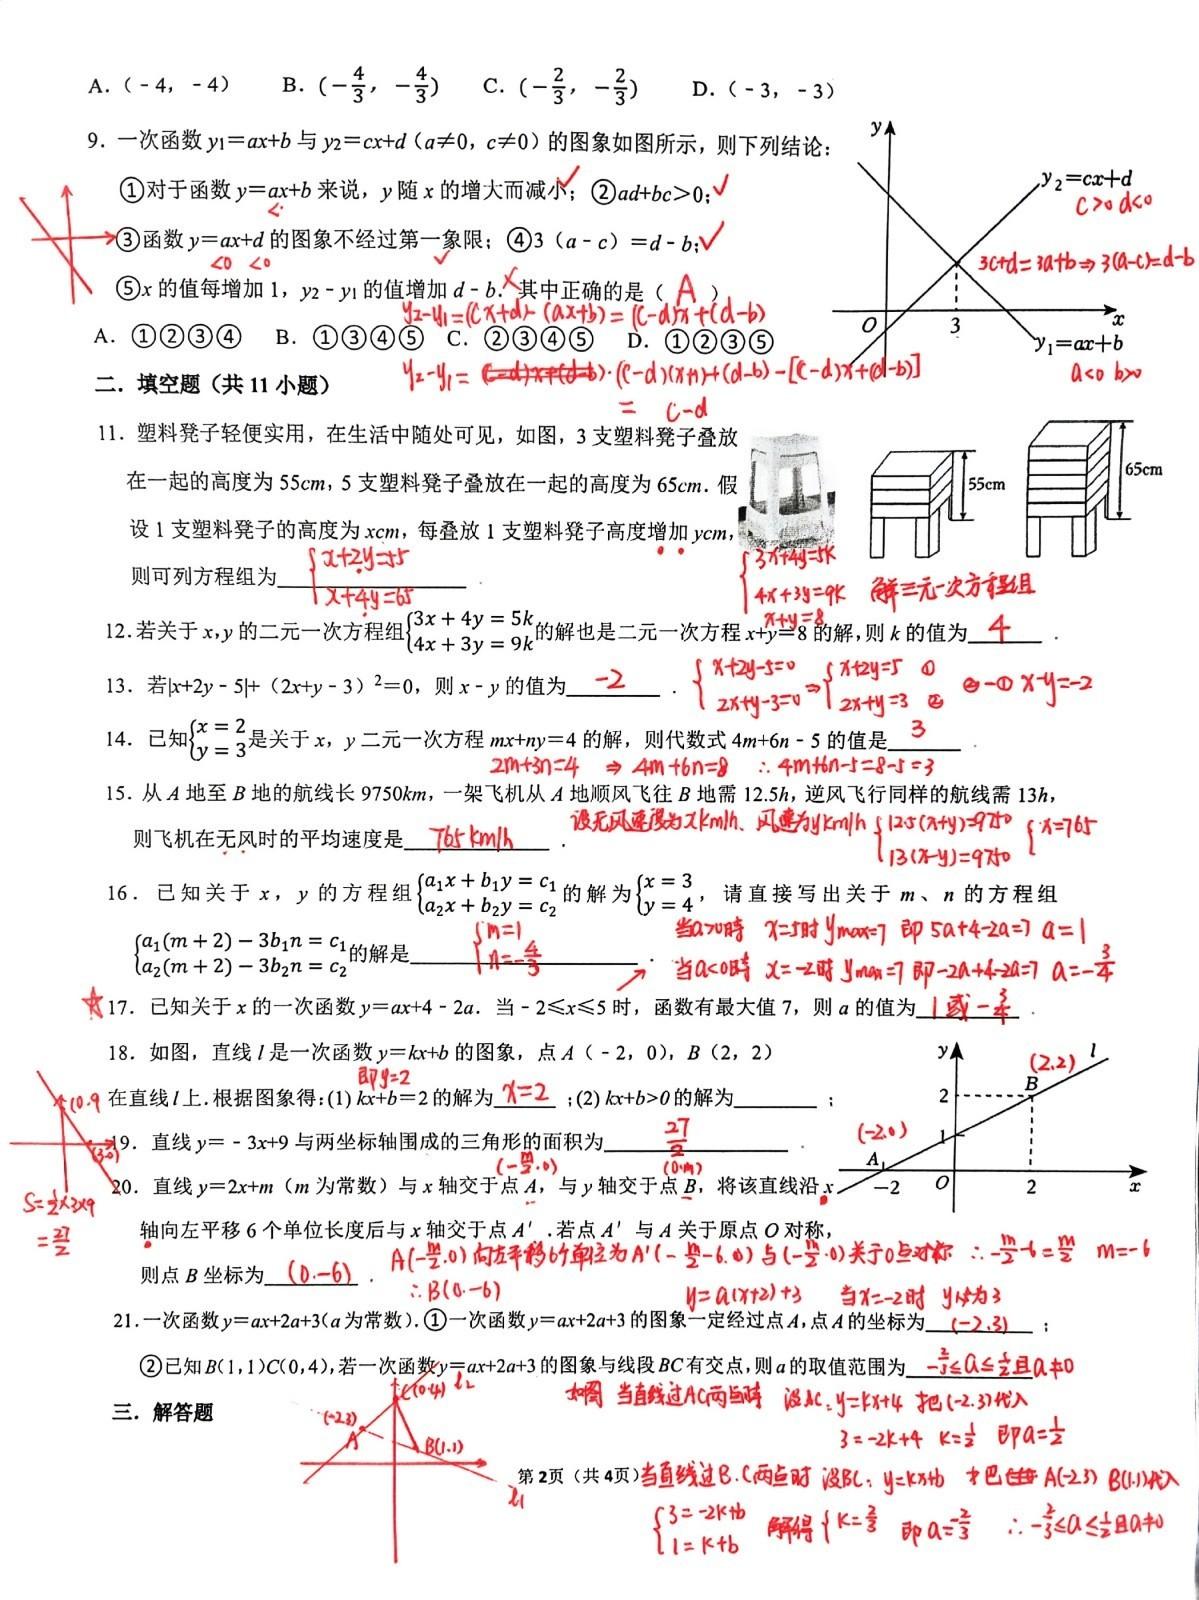 A.（﹣4，﹣4） B.(−4/3，−4/3) C.(−2/3，−2/3) D.（﹣3，﹣3）
9．一次函数 y₁＝ax+b 与 y₂＝cx+d（a≠0，c≠0）的图象如图所示，则下列结论：
①对于函数 y＝ax+b 来说，y 随 x 的增大而减小；✓ ②ad+bc＞0；✓
<
③函数 y＝ax+d 的图象不经过第一象限；✓ ④3（a﹣c）＝d﹣b；✓
<0 <0
⑤x 的值每增加 1，y₂﹣y₁ 的值增加 d﹣b．× 其中正确的是（ A ）
y₂-y₁=(cx+d)-(ax+b)=(c-d)x+(d-b)
A. ①②③④ B. ①③④⑤ C. ②③④⑤ D. ①②③⑤
y
y₂=cx+d
c>0 d<0
3c+d=3a+b⇒3(a-c)=d-b
O 3 x
y₁=ax+b
a<0 b>0
二．填空题（共 11 小题）
y₂-y₁= (c-d)(x+1)+(d-b)-[(c-d)x+(d-b)]
= c-d
11．塑料凳子轻便实用，在生活中随处可见，如图，3 支塑料凳子叠放
在一起的高度为 55cm，5 支塑料凳子叠放在一起的高度为 65cm．假
设 1 支塑料凳子的高度为 xcm，每叠放 1 支塑料凳子高度增加 ycm，
则可列方程组为 { x+2y=55
x+4y=65 .
55cm
65cm
{ 3x+4y=5k
4x+3y=9k 解三元一次方程组
x+y=8
12.若关于 x,y 的二元一次方程组{3x + 4y = 5k
4x + 3y = 9k 的解也是二元一次方程 x+y＝8 的解,则 k 的值为 4 ．
13．若|x+2y﹣5|+（2x+y﹣3）²＝0，则 x﹣y 的值为 -2 ．
{ x+2y-5=0 ⇒ { x+2y=5 ①
2x+y-3=0 2x+y=3 ② ②-① x-y=-2
14．已知{x = 2
y = 3 是关于 x，y 二元一次方程 mx+ny＝4 的解，则代数式 4m+6n﹣5 的值是 3 ．
2m+3n=4 ⇒ 4m+6n=8 ∴4m+6n-5=8-5=3
15．从 A 地至 B 地的航线长 9750km，一架飞机从 A 地顺风飞往 B 地需 12.5h，逆风飞行同样的航线需 13h，
设无风速度为xkm/h、风速为ykm/h { 12.5(x+y)=9750 { x=765
13(x-y)=9750
则飞机在无风时的平均速度是 765km/h ．
16．已知关于 x，y 的方程组{a₁x + b₁y = c₁
a₂x + b₂y = c₂ 的解为{x = 3
y = 4 ，请直接写出关于 m、n 的方程组
{a₁(m + 2) − 3b₁n = c₁
a₂(m + 2) − 3b₂n = c₂ 的解是 { m=1
n=-4/3 ．
当a>0时 x=5时 ymax=7 即 5a+4-2a=7 a=1
当a<0时 x=-2时 ymax=7 即-2a+4-2a=7 a=-3/4
17．已知关于 x 的一次函数 y＝ax+4﹣2a．当﹣2≤x≤5 时，函数有最大值 7，则 a 的值为 1或-3/4 ．
18．如图，直线 l 是一次函数 y＝kx+b 的图象，点 A（﹣2，0），B（2，2）
即y=2
在直线 l 上.根据图象得:(1) kx+b＝2 的解为 x=2 ；(2) kx+b>0 的解为 ；
y
(2.2) l
2 B
1
(-2.0)
A
−2 O 2 x
19．直线 y＝﹣3x+9 与两坐标轴围成的三角形的面积为 27/2
(0.9
(3.0)
S=1/2×3×9
=27/2
(-m/2.0) (0.m)
20．直线 y＝2x+m（m 为常数）与 x 轴交于点 A，与 y 轴交于点 B，将该直线沿 x
轴向左平移 6 个单位长度后与 x 轴交于点 A′．若点 A′与 A 关于原点 O 对称，
A(-m/2.0)向左平移6个单位为A'(-m/2-6.0)与(-m/2.0)关于O点对称 ∴-m/2-6=m/2 m=-6
则点 B 坐标为 (0.-6) ．
∴B(0.-6)
y=a(x+2)+3 当x=-2时 y=3
21.一次函数y＝ax+2a+3(a为常数).①一次函数y＝ax+2a+3的图象一定经过点A,点A的坐标为 (-2.3) ；
②已知B(1,1)C(0,4),若一次函数y＝ax+2a+3的图象与线段BC有交点,则a的取值范围为 -2/3≤a≤1/2且a≠0
三．解答题
C(0.4) l₂
(-2.3)
A
B(1.1)
l₁
如图 当直线过AC两点时 设AC：y=kx+4 把(-2.3)代入
3=-2k+4 k=1/2 即a=1/2
第 2页（共 4页）
当直线过B.C两点时 设BC：y=kx+b 把 A(-2.3) B(1.1)代入
{ 3=-2k+b
1=k+b 解得{ k=-2/3 即a=-2/3 ∴-2/3≤a≤1/2且a≠0